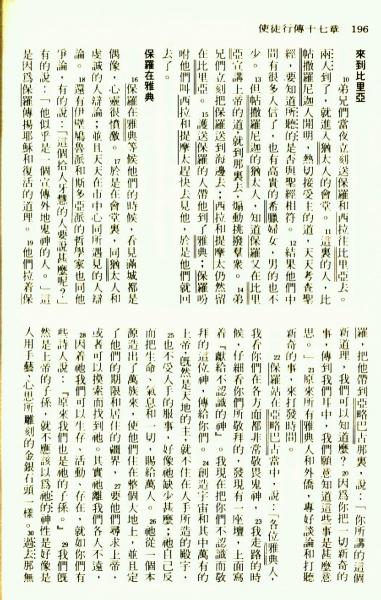 使徒行傳十七章　196
來到比里亞
10 弟兄們當夜立刻送保羅和西拉往比里亞去。
兩人到了，就進入猶太人的會堂。11 這裏的人，比
帖撒羅尼迦人開明，熱切接受主的道，天天考查聖
經，要知道所聽的是否與聖經相符。12 結果他們中
間有很多人信了，也有高貴的希臘婦女，男的也不
少。13 但帖撒羅尼迦的猶太人，知道保羅又在比里
亞宣講上帝的道，就到那裏去，煽動挑撥羣眾。14 弟
兄們立刻把保羅送到海邊去；西拉和提摩太仍然留
在比里亞。15 護送保羅的人帶他到了雅典；保羅吩
咐他們叫西拉和提摩太趕快去見他，於是他們就回
去了。
保羅在雅典
16 保羅在雅典等候他們的時候，看見滿城都是
偶像，心靈很憤激。17 於是在會堂裏，同猶太人和
虔誠的人辯論；並且天天在市中心同所遇見的人辯
論。18 還有伊壁鳩魯派和斯多亞派的哲學家也同他
爭論，有的說：「這個拾人牙慧的人要說甚麼呢？」
有的說：「他似乎是一個宣傳外地鬼神的人。」這
是因為保羅傳揚耶穌和復活的道理。19 他們拉着保
羅，把他帶到亞略巴古那裏，說：「你所講的這個
新道理，我們可以知道麼？20 因為你把一切新奇的
事，傳到我們耳中，我們願意知道這些事是甚麼意
思。」21 原來所有雅典人和外僑，專好談論和打聽
新奇的事，來打發時間。
22 保羅站在亞略巴古當中，說：「各位雅典人，
我看你們在各方面都非常敬畏鬼神，23 我走路的時
候，仔細看你們所敬拜的，發現有一座壇，上面寫
着『獻給不認識的神』。我現在把你們不認識而敬
拜的這位神，傳給你們。24 創造宇宙和其中萬有的
上帝，既然是天地的主，就不住在人手所造的殿宇，
25 也不受人手的服事，好像祂缺少甚麼；祂自己反
而把生命、氣息和一切，賜給萬人。26 祂從一個本
源造出了萬族來，使他們住在整個大地上，並且定
了他們的期限和居住的疆界，27 要他們尋求上帝，
或者可以摸索而找到祂。其實祂離我們各人不遠，
28 因着祂我們可以生存、活動、存在，就如你們有
些詩人說：『原來我們也是祂的子孫。』29 我們既
然是上帝的子孫，就不應該以為祂的神性是好像是
人用手藝、心思所雕刻的金銀石頭一樣。30 過去那無